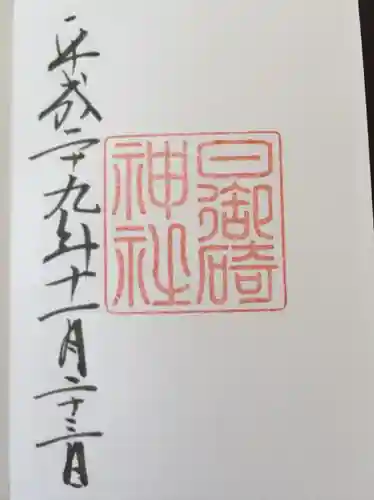 日御碕
神社
平成二十九年十一月二十三日